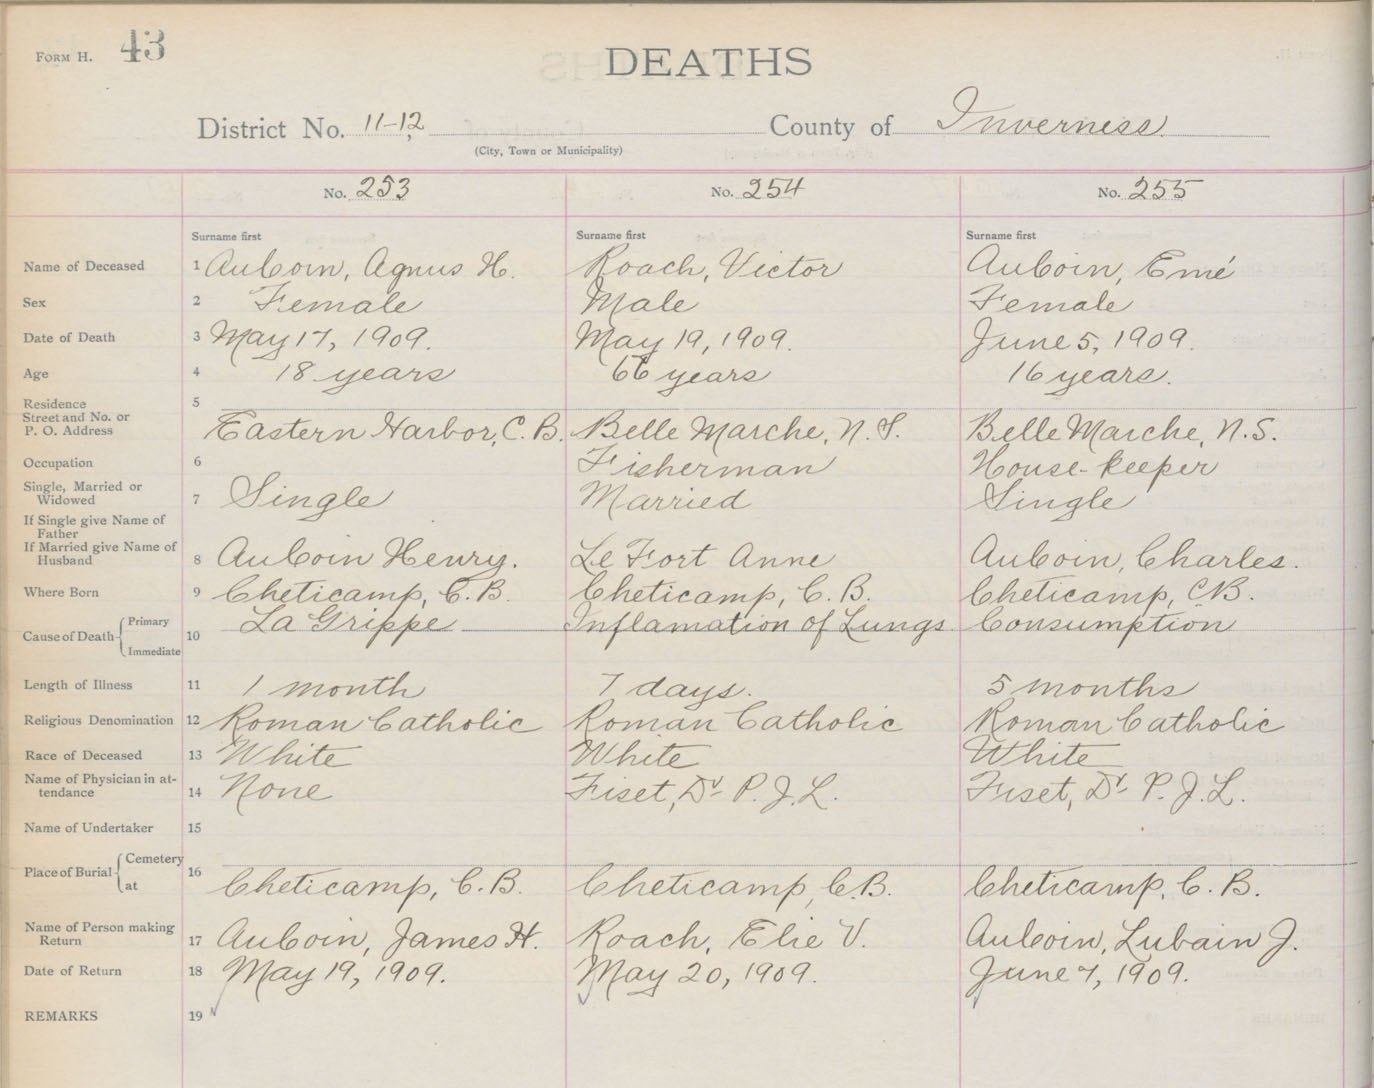 FORM H. 43
DEATHS
District No. 11-12, County of Inverness
(City, Town or Municipality)
No. 253 No. 254 No. 255
Surname first Surname first Surname first
Name of Deceased 1 AuCoin, Agnus H. Roach, Victor AuCoin, Emé
Sex 2 Female Male Female
Date of Death 3 May 17, 1909. May 19, 1909. June 5, 1909.
Age 4 18 years 66 years 16 years.
Residence 5
Street and No. or
P. O. Address Eastern Harbor, C. B. Belle Marche, N. S. Belle Marche, N.S.
Occupation 6 Fisherman House-keeper
Single, Married or
Widowed 7 Single Married Single
If Single give Name of
Father
If Married give Name of
Husband 8 AuCoin Henry. Le Fort Anne AuCoin, Charles.
Where Born 9 Cheticamp, C. B. Cheticamp, C. B. Cheticamp, CB.
Cause of Death Primary La Grippe Inflamation of Lungs Consumption
10
Immediate
Length of Illness 11 1 month 7 days. 5 months
Religious Denomination 12 Roman Catholic Roman Catholic Roman Catholic
Race of Deceased 13 White White White
Name of Physician in at-
tendance 14 None Fiset, Dr P. J. L. Fiset, Dr P. J. L.
Name of Undertaker 15
Place of Burial Cemetery 16
at Cheticamp, C. B. Cheticamp, C.B. Cheticamp, C. B.
Name of Person making
Return 17 AuCoin, James H. Roach, Elie V. AuCoin, Lubain J.
Date of Return 18 May 19, 1909. May 20, 1909. June 7, 1909.
REMARKS 19